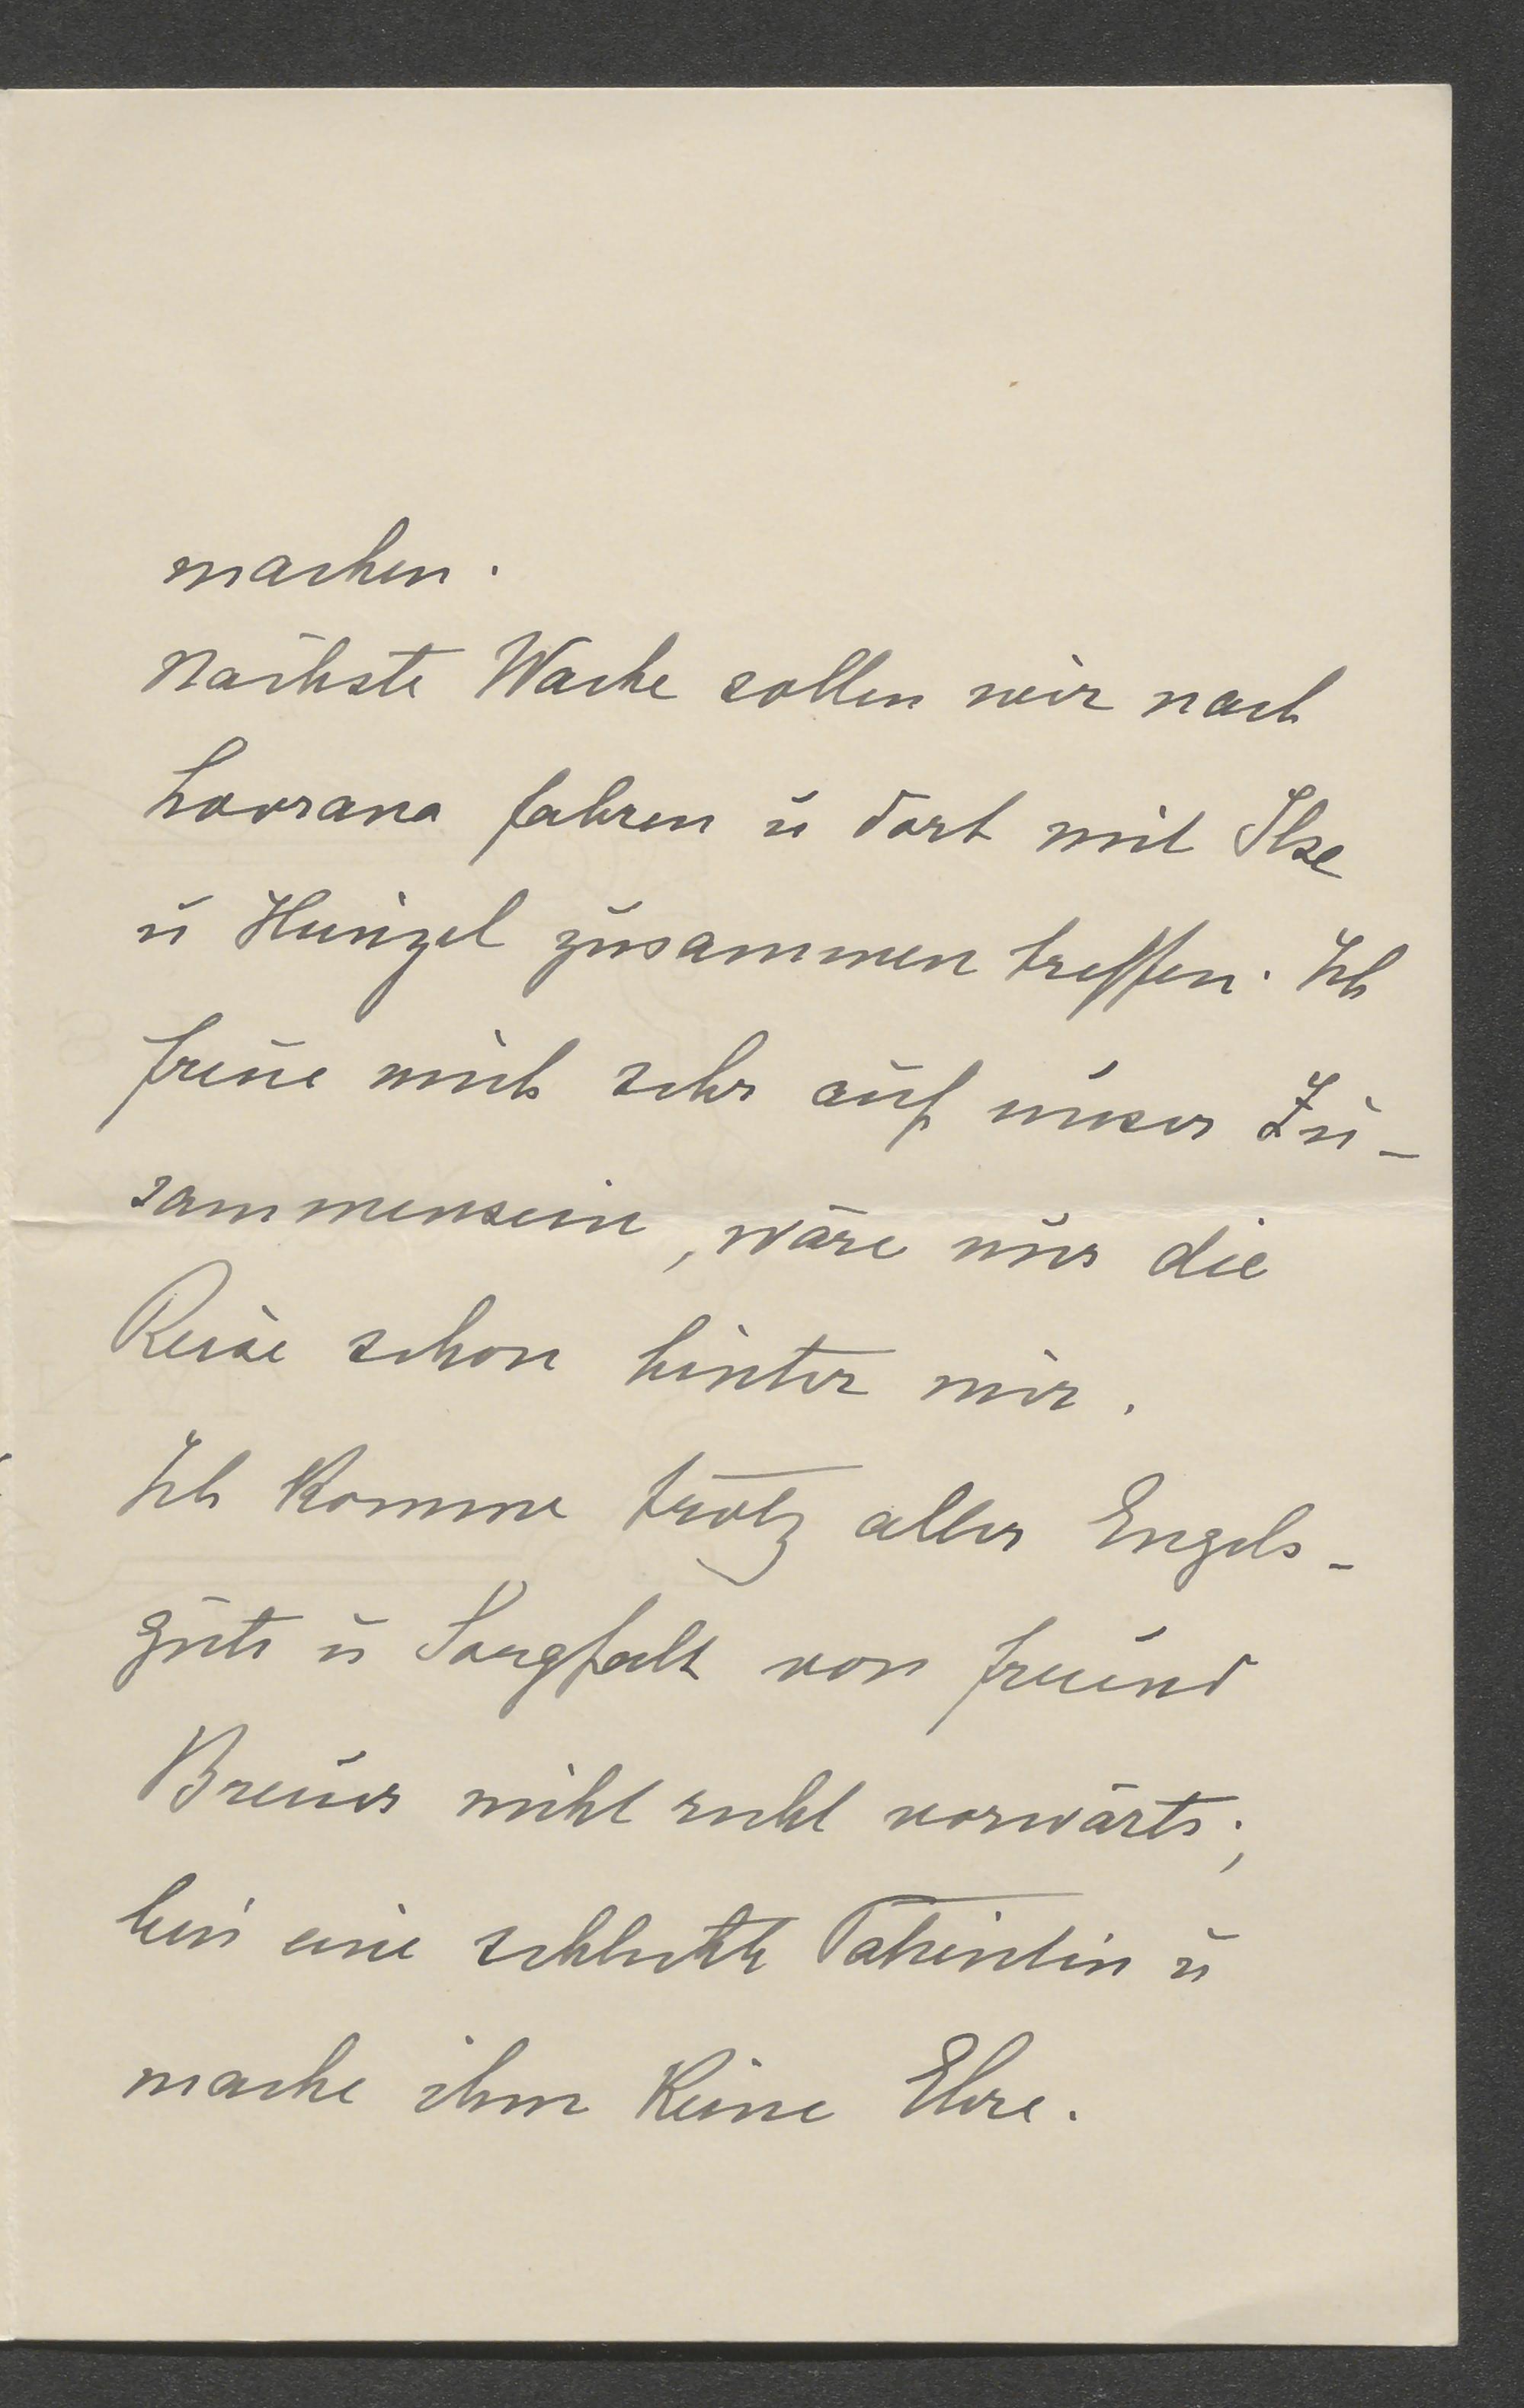 machen.
Nächste Woche sollen wir nach
Lovrana fahren u dort mit Ilse
u Heinzel zusammen treffen. Ich
freue mich sehr auf unser Zu-
sammensein, wäre nur die
Reise schon hinter mir.
Ich komme trotz aller Engels-
güte u Sorgfalt von Freund
Breuer nicht recht vorwärts;
bin eine schlechte Patientin u
mache ihm keine Ehre.